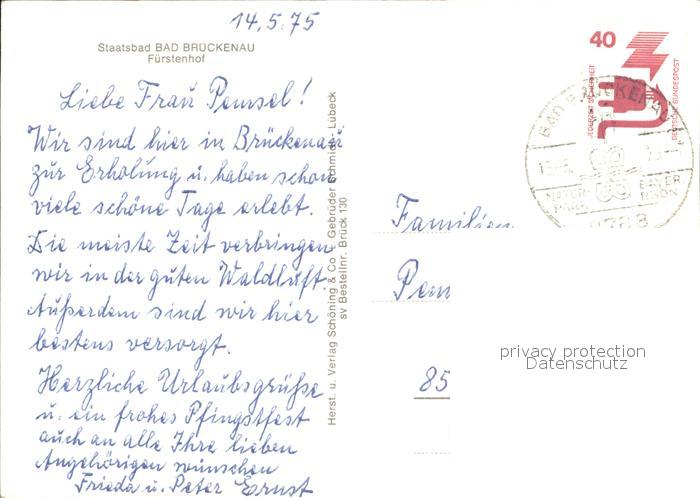 14.5.75
Staatsbad BAD BRÜCKENAU
Fürstenhof
Liebe Frau Pemsel!
Wir sind hier in Brückenau
zur Erholung u. haben schon
viele schöne Tage erlebt.
Die meiste Zeit verbringen
wir in der guten Waldluft.
Außerdem sind wir hier
bestens versorgt.
Herzliche Urlaubsgrüße
u. ein frohes Pfingstfest
auch an alle Ihre lieben
Angehörigen wünschen
Frieda u. Peter Ernst
Herst. u. Verlag Schöning & Co + Gebrüder Schmidt, Lübeck
sv Bestellnr. Brück 130
40
JEDERZEIT SICHERHEIT
DEUTSCHE BUNDESPOST
BAD BRÜCKENAU
NATUR-
PARK
BAYER
RHÖN
8788
Familien
Pem
85
privacy protection
Datenschutz